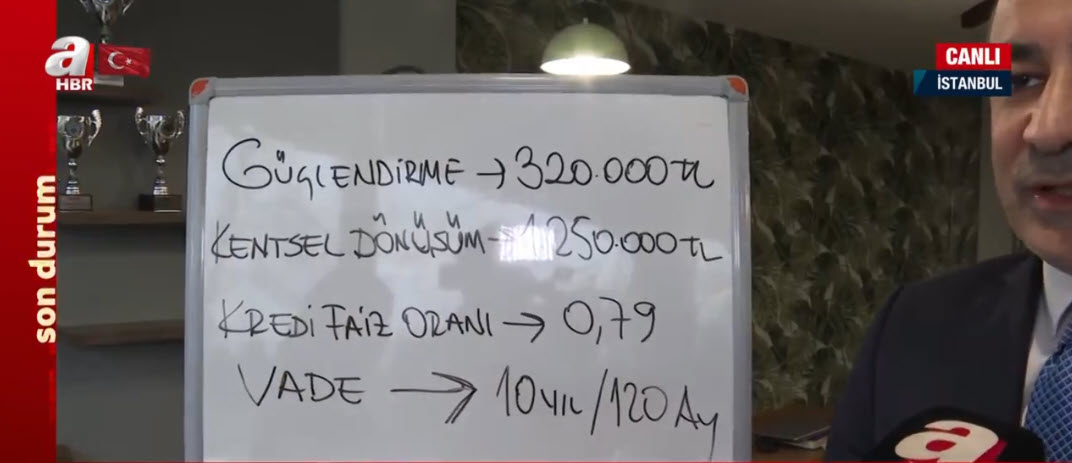 a
HBR
CANLI
İSTANBUL
son durum
GÜÇLENDİRME → 320.000 TL
KENTSEL DÖNÜŞÜM → 1.250.000 TL
KREDİ FAİZ ORANI → 0,79
VADE → 10 YIL / 120 Ay
a